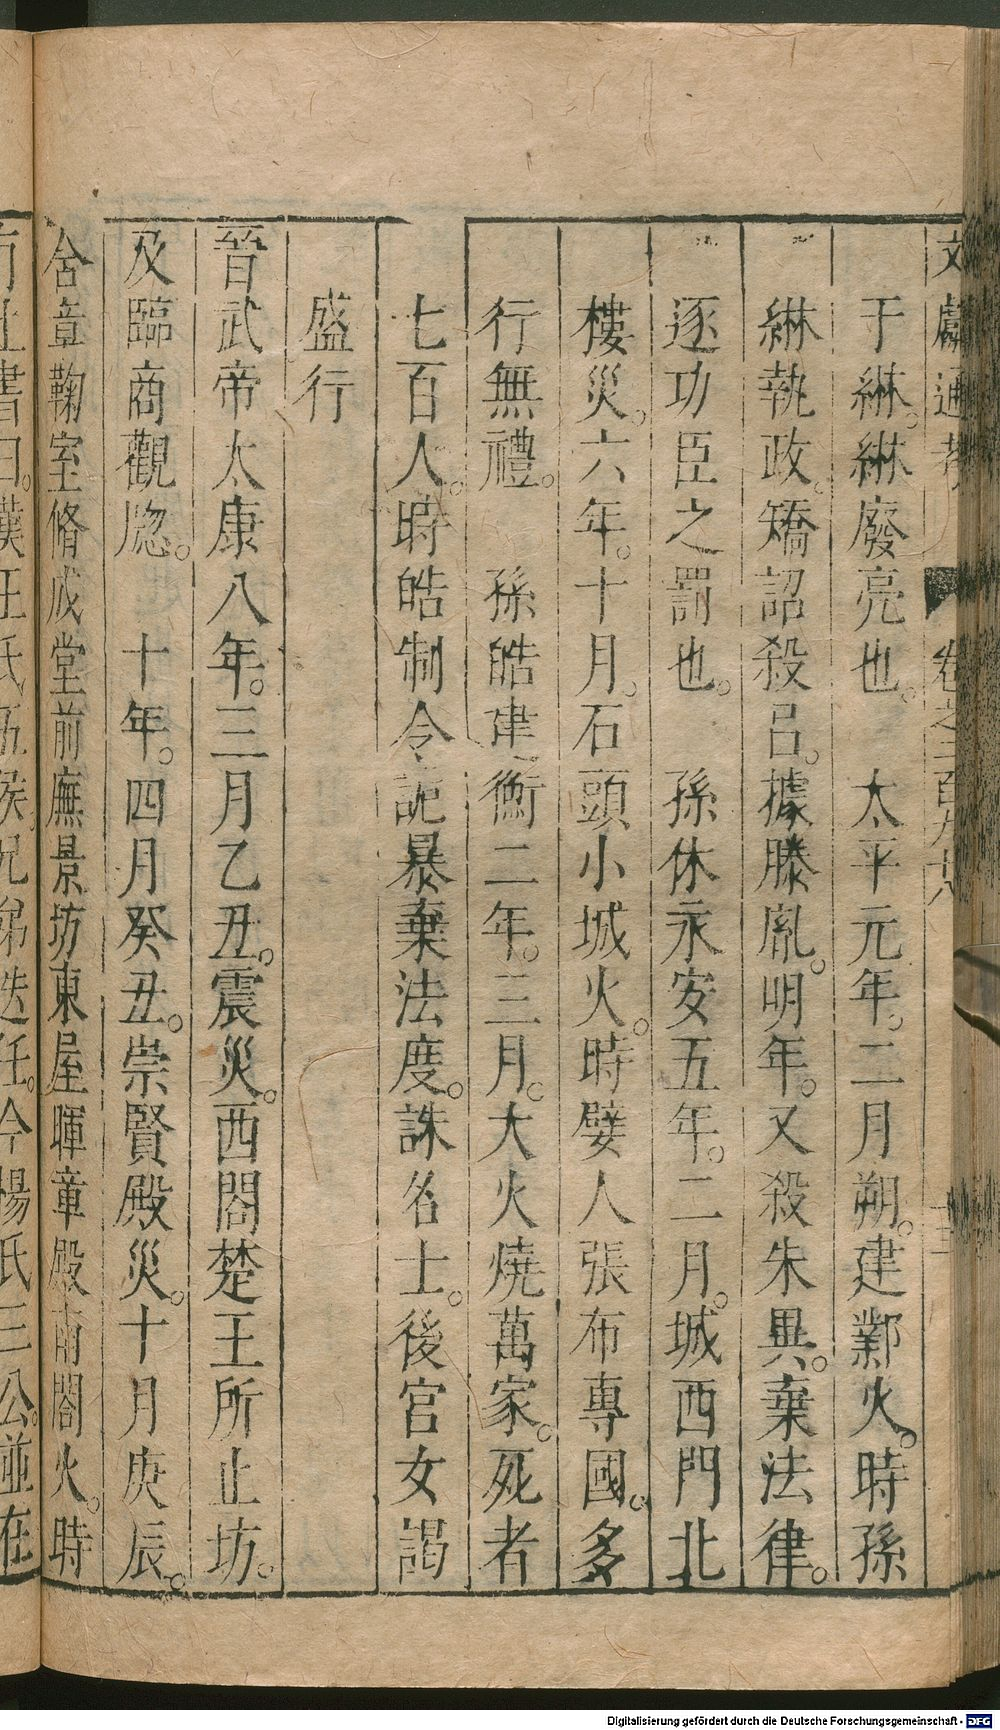 文獻通考 卷之二百九十八
于綝。綝廢亮也。 太平元年。二月朔。建鄴火。時孫
綝執政。矯詔殺呂。據滕胤。明年。又殺朱異。棄法律。
逐功臣之罰也。 孫休永安五年。二月。城西門北
樓災。六年。十月。石頭小城火。時嬖人張布專國。多
行無禮。 孫皓建衡二年。三月。大火燒萬家。死者
七百人。時皓制令詭暴棄法度。誅名士。後宮女謁
盛行
晉武帝太康八年。三月乙丑。震災。西閤楚王所止坊。
及臨商觀牕。 十年。四月癸丑。崇賢殿災。十月庚辰。
含章鞠室脩成堂前廡景坊東屋暉章殿南閤火。時
有上書曰。漢王氏五侯兄弟迭任。今楊氏三公。並在
Digitalisierung gefördert durch die Deutsche Forschungsgemeinschaft - DFG